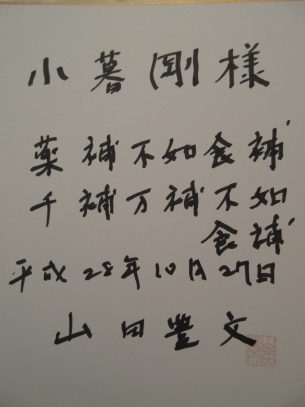 小暮剛様
薬補不如食補
千補万補不如
食補
平成28年10月27日
山田豊文